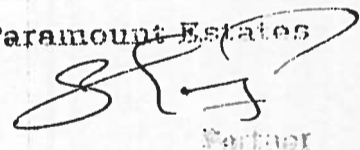 Paramount Estates
Partner